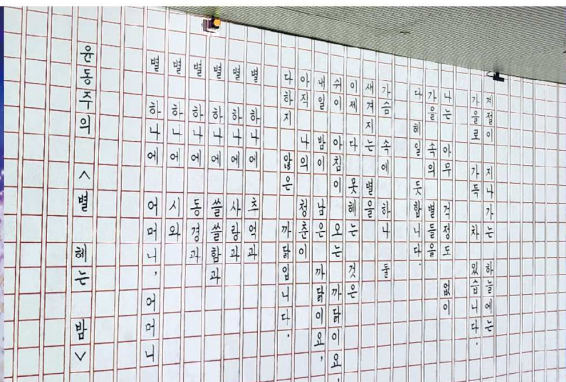 계절이 지나가는 하늘에는
가을로 가득 차 있습니다.
나는 아무 걱정도 없이
가을 속의 별들을
다 헤일 듯합니다.
가슴 속에 하나 둘
새겨지는 별을
이제 다 못 헤는 것은
쉬이 아침이 오는 까닭이요,
내일 밤이 남은 까닭이요,
아직 나의 청춘이
다하지 않은 까닭입니다.
별 하나에 추억과
별 하나에 사랑과
별 하나에 쓸쓸함과
별 하나에 동경과
별 하나에 시와
별 하나에 어머니, 어머니
윤동주의 <별 헤는 밤>